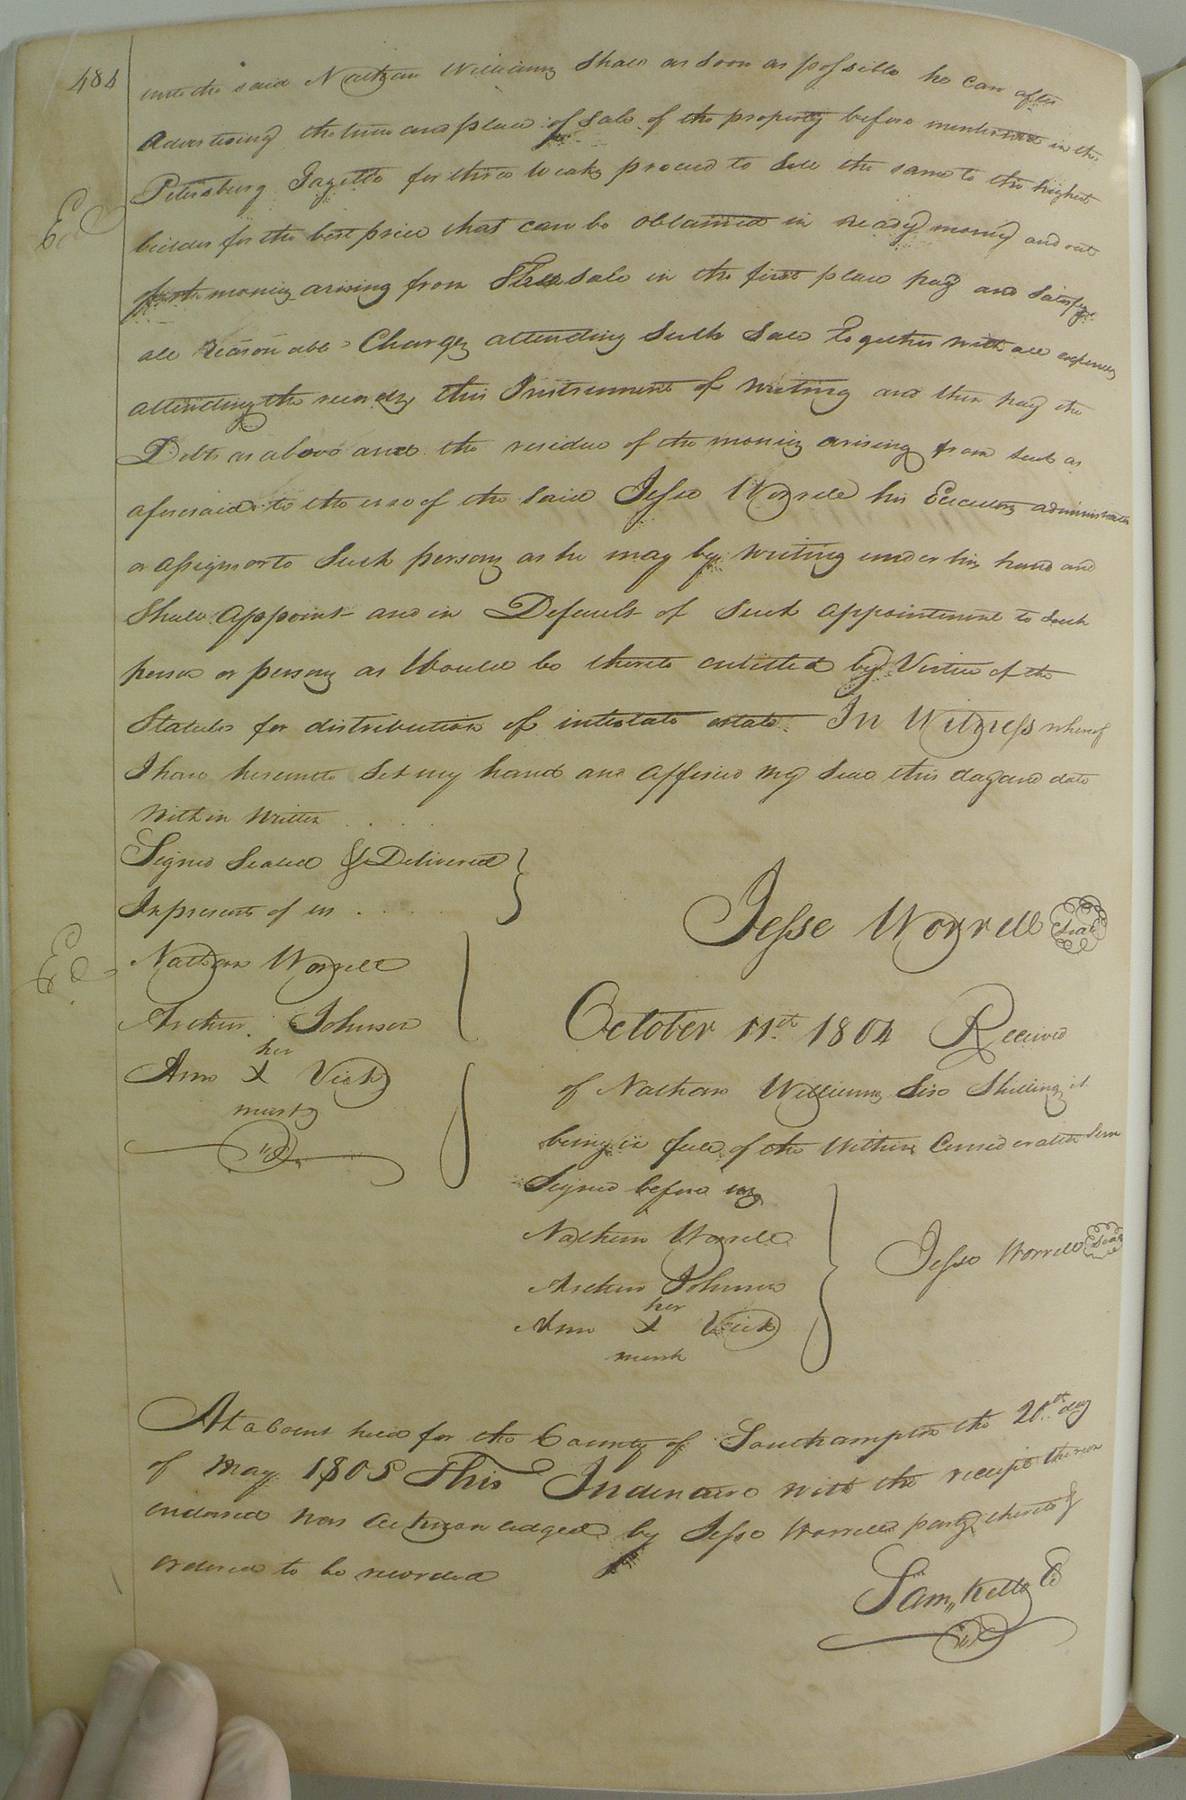 484
unto the said Nathan Williams Shall as soon as possible he can after
Advertising the time and place of Sale of the property before mentioned in the
Petersburg Gazette for three weaks proceed to Sell the same to the highest
bidder for the best price that can be obtained in ready money and out
of the monies arising from Such Sale in the first place pay and Satisfye
all reasonable Charges attending Such Sale together with all expences
attending the recordg this Instrument of writing and then pay the
Debts as above and the residue of the monies arising from Such as
aforesaid to the use of the said Jesse Worrell his Executors administrators
or assigns or to Such persons as he may by writing under his hand and
Shall Appoint and in Default of Such appointment to Such
person or persons as Would be thereto entitled by Virtue of the
Statutes for distribution of intestate estate. In Witness whereof
I have hereunto Set my hand and affixed my Seal this day and date
Within Written
Signed Sealed & Delivered
In presents of us
Jesse Worrell Seal
Nathan Worrell
Archer Johnson
her
Ann X Vick
mark
October 11th 1804 Received
of Nathan Williams Six Shillings it
being in full of the Within Consideration Sum
Signed before us
Nathan Worrell
Archer Johnson
her
Ann X Vick
mark
Jesse Worrell Seal
At a Court held for the County of Southampton the 20th day
of May 1805 This Indenture with the receipt thereon
endorsed was acknowledged by Jesse Worrell party thereto &
ordered to be recorded
Saml, Kello C